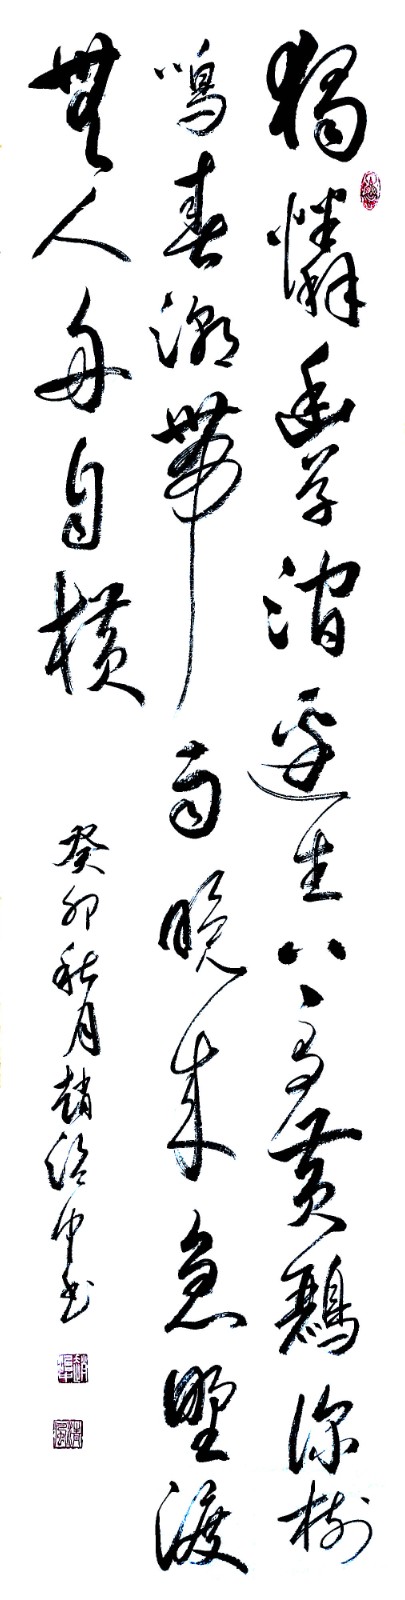 獨憐幽草澗邊生上有黃鸝深樹
鳴春潮帶雨晚來急野渡
無人舟自橫
癸卯秋月趙治中書